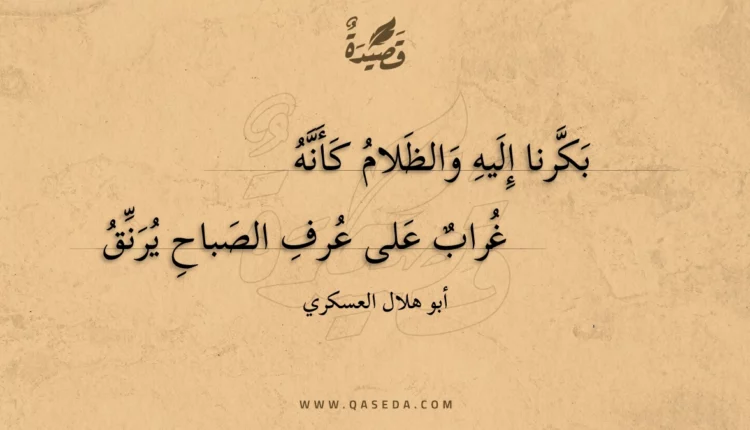 قَصِيْدَةٌ
بَكَّرنا إِلَيهِ وَالظَلامُ كَأَنَّهُ
غُرابٌ عَلى عُرفِ الصَباحِ يُرَنِّقُ
أبو هلال العسكري
WWW.QASEDA.COM